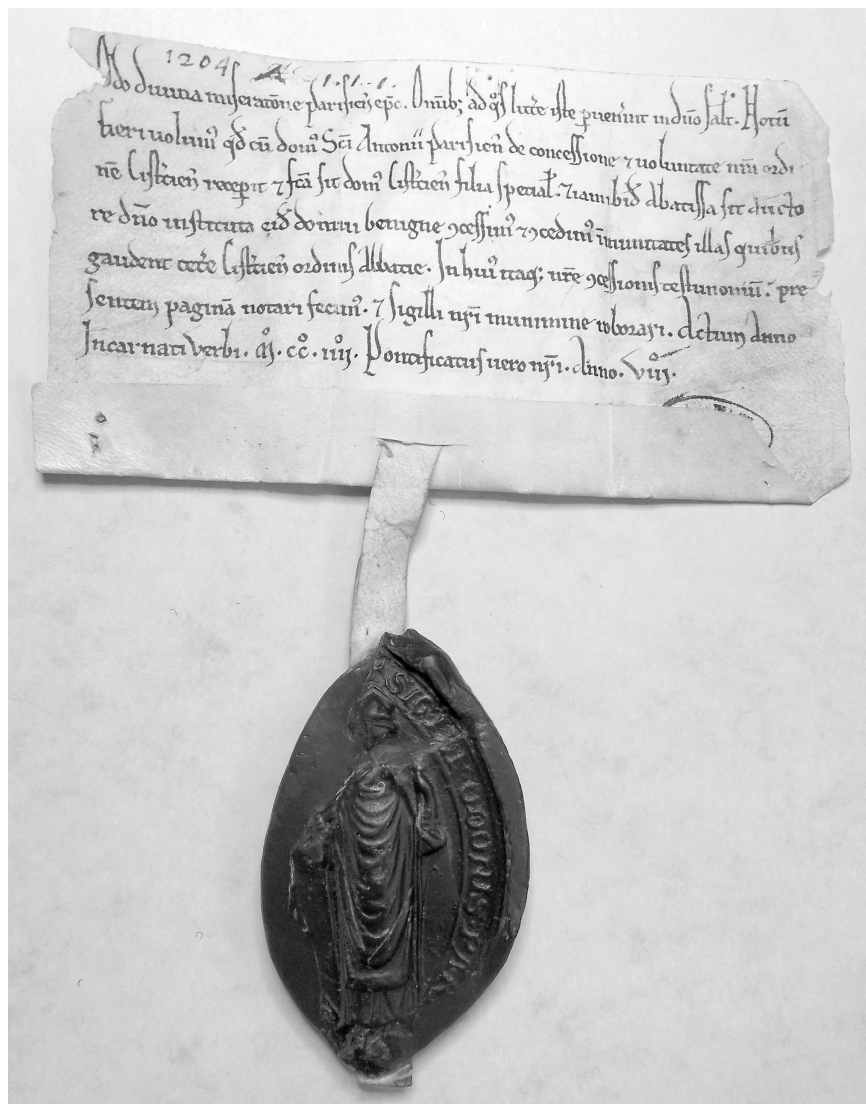 1204
Odo divina miseratōne parisieñ ep̄c. Omīb; ad q̊s litt̄e iste pervenīnt in dn̄o salt̄. Notū
fieri volum᷒ qd̄ cū dom᷒ Sc̄i Antonii parisieñ de concessione ⁊ voluntate nr̄a ordi
nē Cist̄cieñ recep̄it ⁊ fc̄a sit dom᷒ Cist̄cieñ filia special̄. ⁊ iam ibid̄ Abbatissa sit aucto
re dn̄o instituta eid̄ domui benigne ꝯcessim᷒ ⁊ ꝯcedim᷒ īmunitates illas quib᷒
gaudent cet̄e Cist̄cieñ ordinis Abbatie. In hui᷒ itaq; nr̄e ꝯcessionis testimoniū. pre
sentem paginā notari fecim᷒. ⁊ sigilli nr̄i munimine roborari. Actum anno
Incarnati verbi. M̊. CC̊. IIII̊. Pontificatus vero nr̄i. Anno. VIII̊.
SIGILL ODONIS PAR